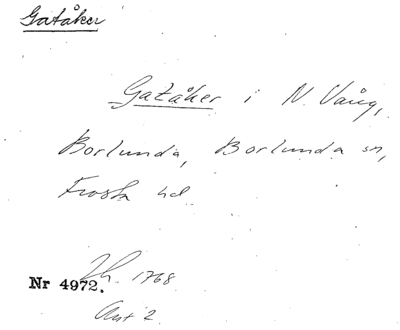 Gatåker
Gatåker i N. Vång,
Borlunda, Borlunda sn,
Frosta hd
Nr 4972. 1768
Akt 2